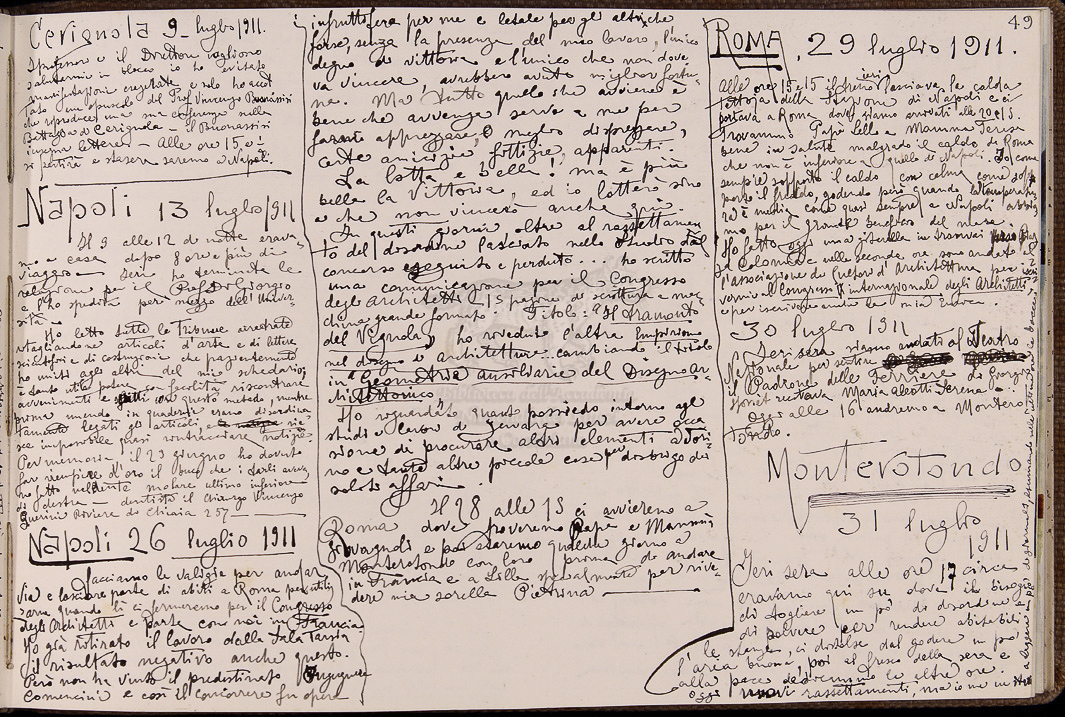 49
Cerignola 9 luglio 1911.
Professori e il Direttore vogliono
in blocco io ho evitato
e solo ho accet
tato un opuscolo del Prof Vincenzo
che riproduce una sua conferenza sulla
Battaglia di Cerignola – il
Alle ore 15, e
si partirà e stasera saremo a Napoli.
Napoli 13 luglio 1911
Il 9 alle 12 di notte erava-
mo a casa dopo 8 ore e più di
viaggio – Ieri ho terminato la
relazione per il Prof De Giorgio
e l'ho spedita per mezzo dell'Univer-
sità –
Ho letto tutte le Tribune arretrate
stagliandone articoli d'arte e di lettere
scientifici e di costruzioni che pazientemente
ho uniti agli altri del mio schedario
è tanto utile potere con facilità riscontrare
avvenimenti e fatti con questo metodo, mentre
prima unendo in quaderni erano disordina-
tamente legati gli articoli, e rie-
sce impossibile quasi rintracciare notizie
Per memoria, il 23 giugno ho dovuto
far riempire d'oro il buco che i tarli aveva
no fatto nel dente molare ultimo inferiore
di destra – dentista il Chirurgo Vincenzo
Guerini Riviera di Chiaia 257 –
Napoli 26 luglio 1911
Facciamo le valigie per andar
via e lasciare parte di abiti a Roma per utiliz
zarne quando lì ci fermeremo per il Congresso
degli Architetti e parte con noi in Francia.
Ho già ritirato il lavoro dalla Sala Tarsia
il risultato negativo anche questo.
Però non ha vinto il predestinato Ingegnere
Comencini e così il concorrere fu opera
infruttifera per me e letale per gli altri che
forse, senza la presenza del mio lavoro, l'unico
degno di vittoria e l'unico che non dove
va vincere, avrebbero avuto miglior fortu-
na. Ma tutto quello che avviene è
bene che avvenga serva a me per
farmi apprezzare, o meglio disprezzare,
certe amicizie fittizie, apparenti.
La lotta è bella! ma è più
bella la vittoria, ed io lotterò sino
a che non vincerò anche giù
In questi giorni, oltre al rassettamen
to del disordine lasciato nello studio dal
concorso eseguito e perduto... ho scritto
una comunicazione per il Congresso
degli Architetti – 15 pagine di scrittura a mac-
china grande formato. Titolo: "Il tramonto
del Vignola", ho riveduto d'altra
nel disegno e architettura – cambiando il titolo
in "Geometria ausiliaria del Disegno Ar-
chitettonico"
Ho riguardato quanto possiedo intorno agli
studi e lavori di Genova per avere occa
sione di procurare altri elementi a Tori-
no e tante altre piccole cose per disbrigo dei
soliti affari.
Il 28 alle 15 ci avvieremo a
Roma dove troveremo Papà e Mammà
Giovagnoli e poi staremo qualche giorno a
Monterotondo con loro prima di andare
in Francia e a Lilla specialmente per rive-
dere mia sorella Pierina –
Roma, 29 luglio 1911.
Alle ore 15 e 15 ieri il treno lasciava la calda
tettoia della Stazione di Napoli e ci
portava a Roma dove siamo arrivati alle 20 e 15.
Trovammo Papà Lello e Mamma Teresa
bene in salute malgrado il caldo di Roma
che non è inferiore a quello di Napoli. Io come
sempre sopporto il caldo con calma come sop
porto il freddo, godendo però quando la temperatu
ra è media, come quasi sempre a Napoli abbia
mo per il grande benefizio del mare.
Ho fatto oggi una giratella in tramvai
al Colonnato sulla seconda ora sono andato al
l'associazione dei Cultori d'Architettura per
il Congresso internazionale degli Architetti
e per iscrivere anche la mia
30 luglio 1911
Ieri sera siamo andati al Teatro
Nazionale per sentire
il Padrone delle Ferriere di Giorgio
Ohnet recitava Maria
Oggi alle 16 andremo a Montero
tondo.
Monterotondo
31 luglio
1911
Ieri sera alle ore 17 circa
eravamo qui su dove il bisogno
di togliere un pò di disordine e
di polvere per rendere abitabili
le stanze, ci distolse dal godere un pò
l'aria buona, poi il fresco della sera e
alla pace dedicammo le altre ore.
Oggi nuovi rassettamenti, ma io me ne